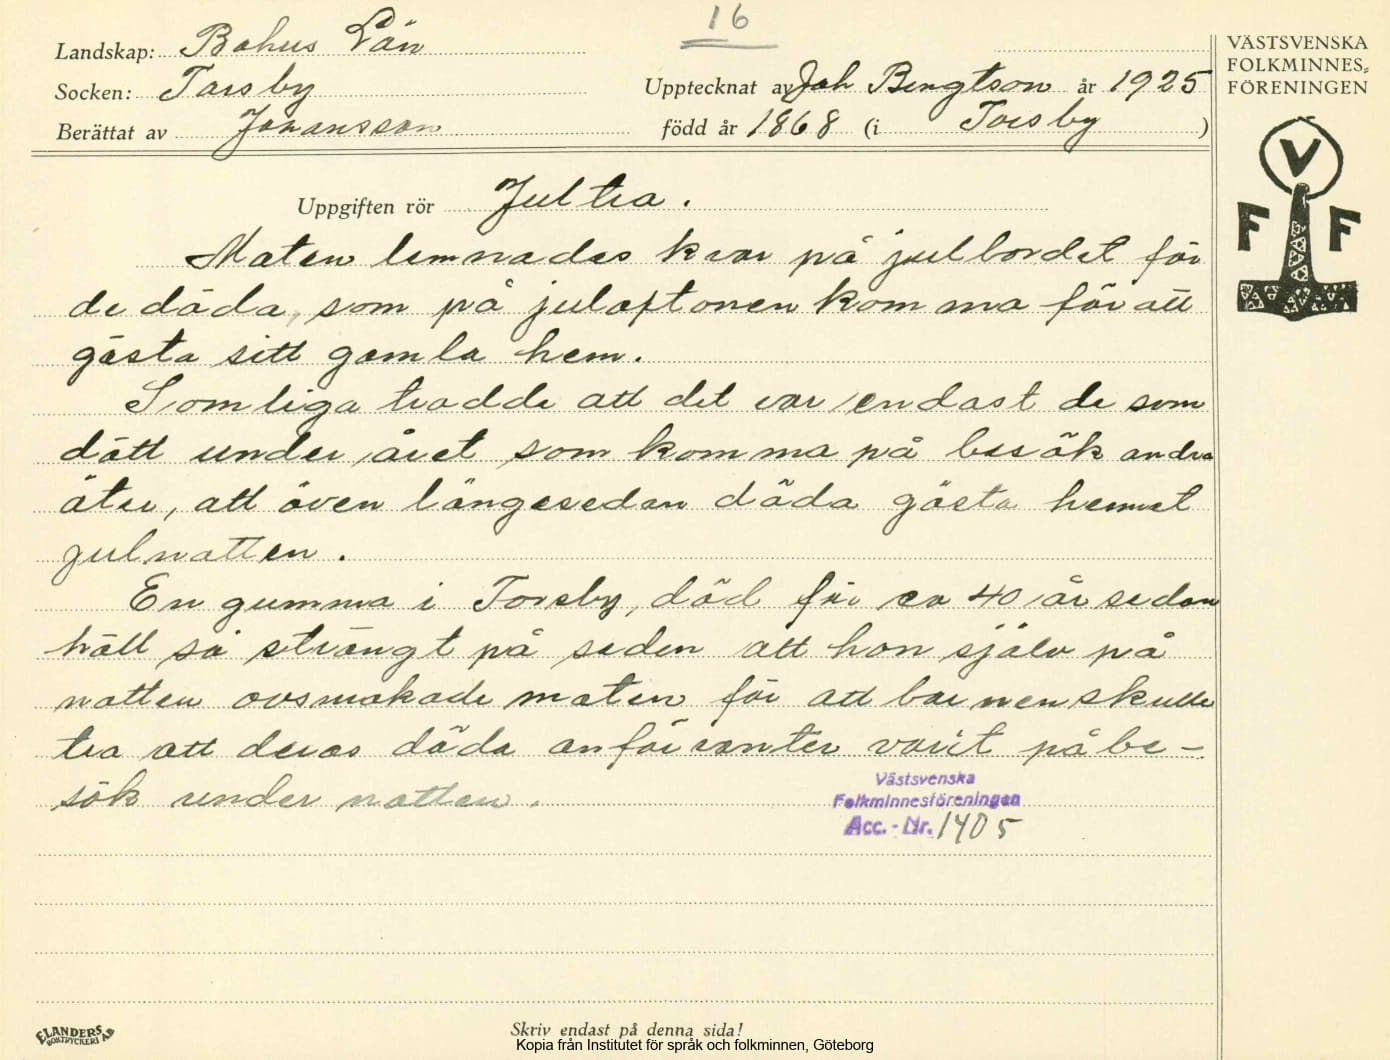 16
Landskap: Bohus Län
Socken: Torsby
Upptecknat av Joh Bengtson år 1925
Berättat av Johansson
född år 1868 (i Torsby)
VÄSTSVENSKA
FOLKMINNES-
FÖRENINGEN
V
F F
Uppgiften rör Jultro.
Maten lemnades kvar på julbordet för
de döda, som på julaftonen komma för att
gästa sitt gamla hem.
Somliga trodde att det var endast de som
dött under året som komma på besök andra
åter, att även längesedan döda gästa hemmet
julnatten.
En gumma i Torsby, död för ca 40 år sedan
höll så strängt på seden att hon själv på
natten avsmakade maten för att barnen skulle
tro att deras döda anförvanter varit på be-
sök under natten.
Västsvenska
Folkminnesföreningen
Acc. - Nr. 1405
ELANDERS
BOKTRYCKERI AB
Skriv endast på denna sida!
Kopia från Institutet för språk och folkminnen, Göteborg